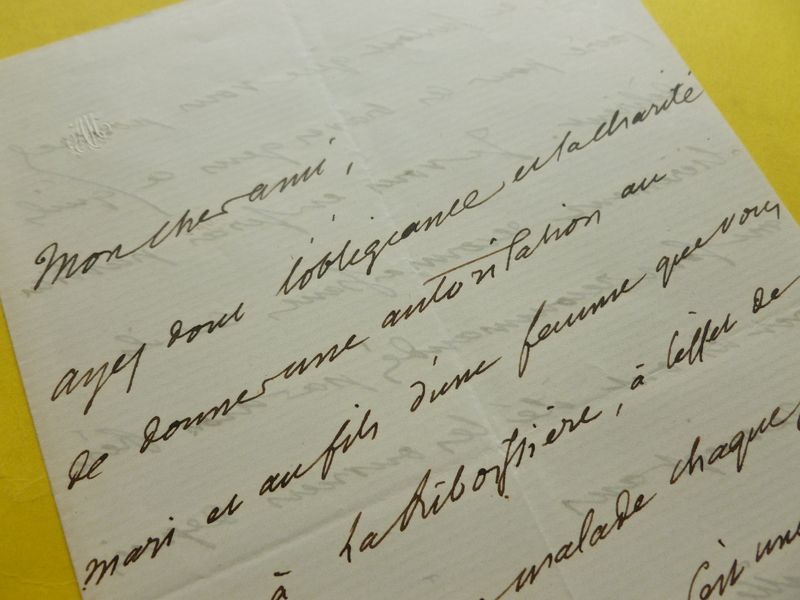 Mon cher ami,
ayez donc l'obligeance et la charité
de donner une autorisation au
mari et au fils d'une femme que vous
à Lariboissière, à l'effet de
malade chaque
C'est une